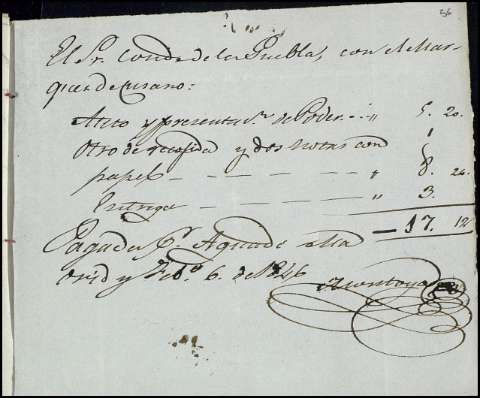 El Sr. Conde de la Puebla, con el Mar-
ques de Cusano:
Auto y presentan. de Poder .. " 5. 20.
Otro de recojida y dos notas con
papel — — — — " 8. 24.
Entrega — — — — " 3.
— 17. 12
Pagado Sr. Aguado Ma
drid y Feb.o 6. de 1846
Montoya